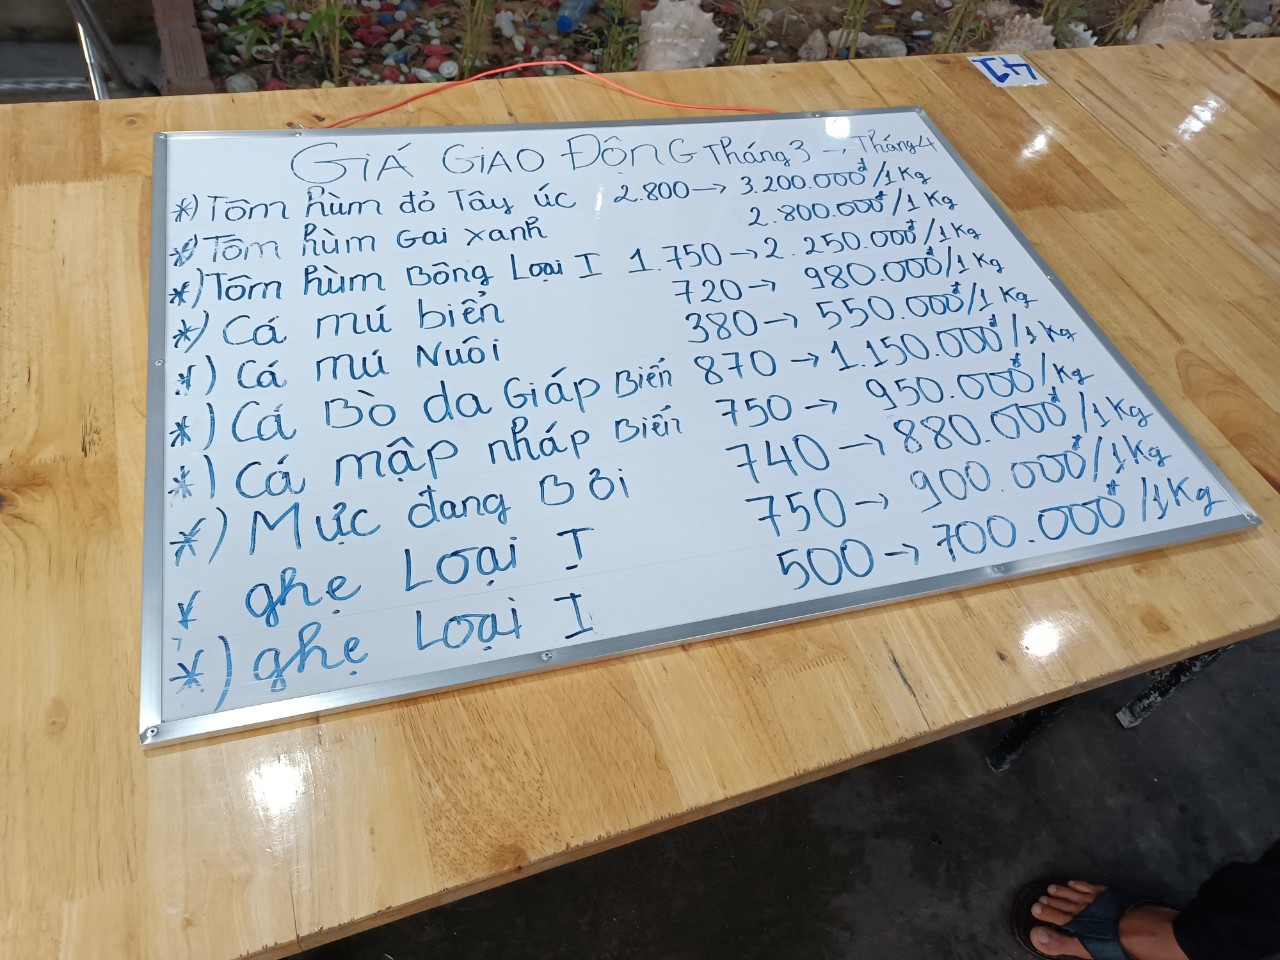 GIÁ GIAO ĐỘNG Tháng 3 → Tháng 4
*) Tôm hùm đỏ Tây úc 2.800 → 3.200.000đ/1Kg
*) Tôm hùm Gai xanh 2.800.000đ/1Kg
*) Tôm hùm Bông Loại I 1.750 → 2.250.000đ/1Kg
*) Cá mú biển 720 → 980.000đ/1Kg
*) Cá mú Nuôi 380 → 550.000đ/1Kg
*) Cá Bò da Giáp Biển 870 → 1.150.000đ/1Kg
*) Cá mập nháp Biển 750 → 950.000đ/Kg
*) Mực đang Bơi 740 → 880.000đ/1Kg
* ghẹ Loại I 750 → 900.000đ/1Kg
*) ghẹ Loại I 500 → 700.000đ/1Kg
41